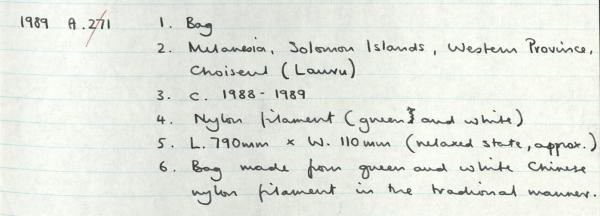 1989 A.271 1. Bag
2. Melanesia, Solomon Islands, Western Province,
Choiseul (Lauru)
3. c. 1988-1989
4. Nylon filament (green and white)
5. L. 790mm x W. 110mm (relaxed state, approx.)
6. Bag made from green and white Chinese
nylon filament in the tradional manner.